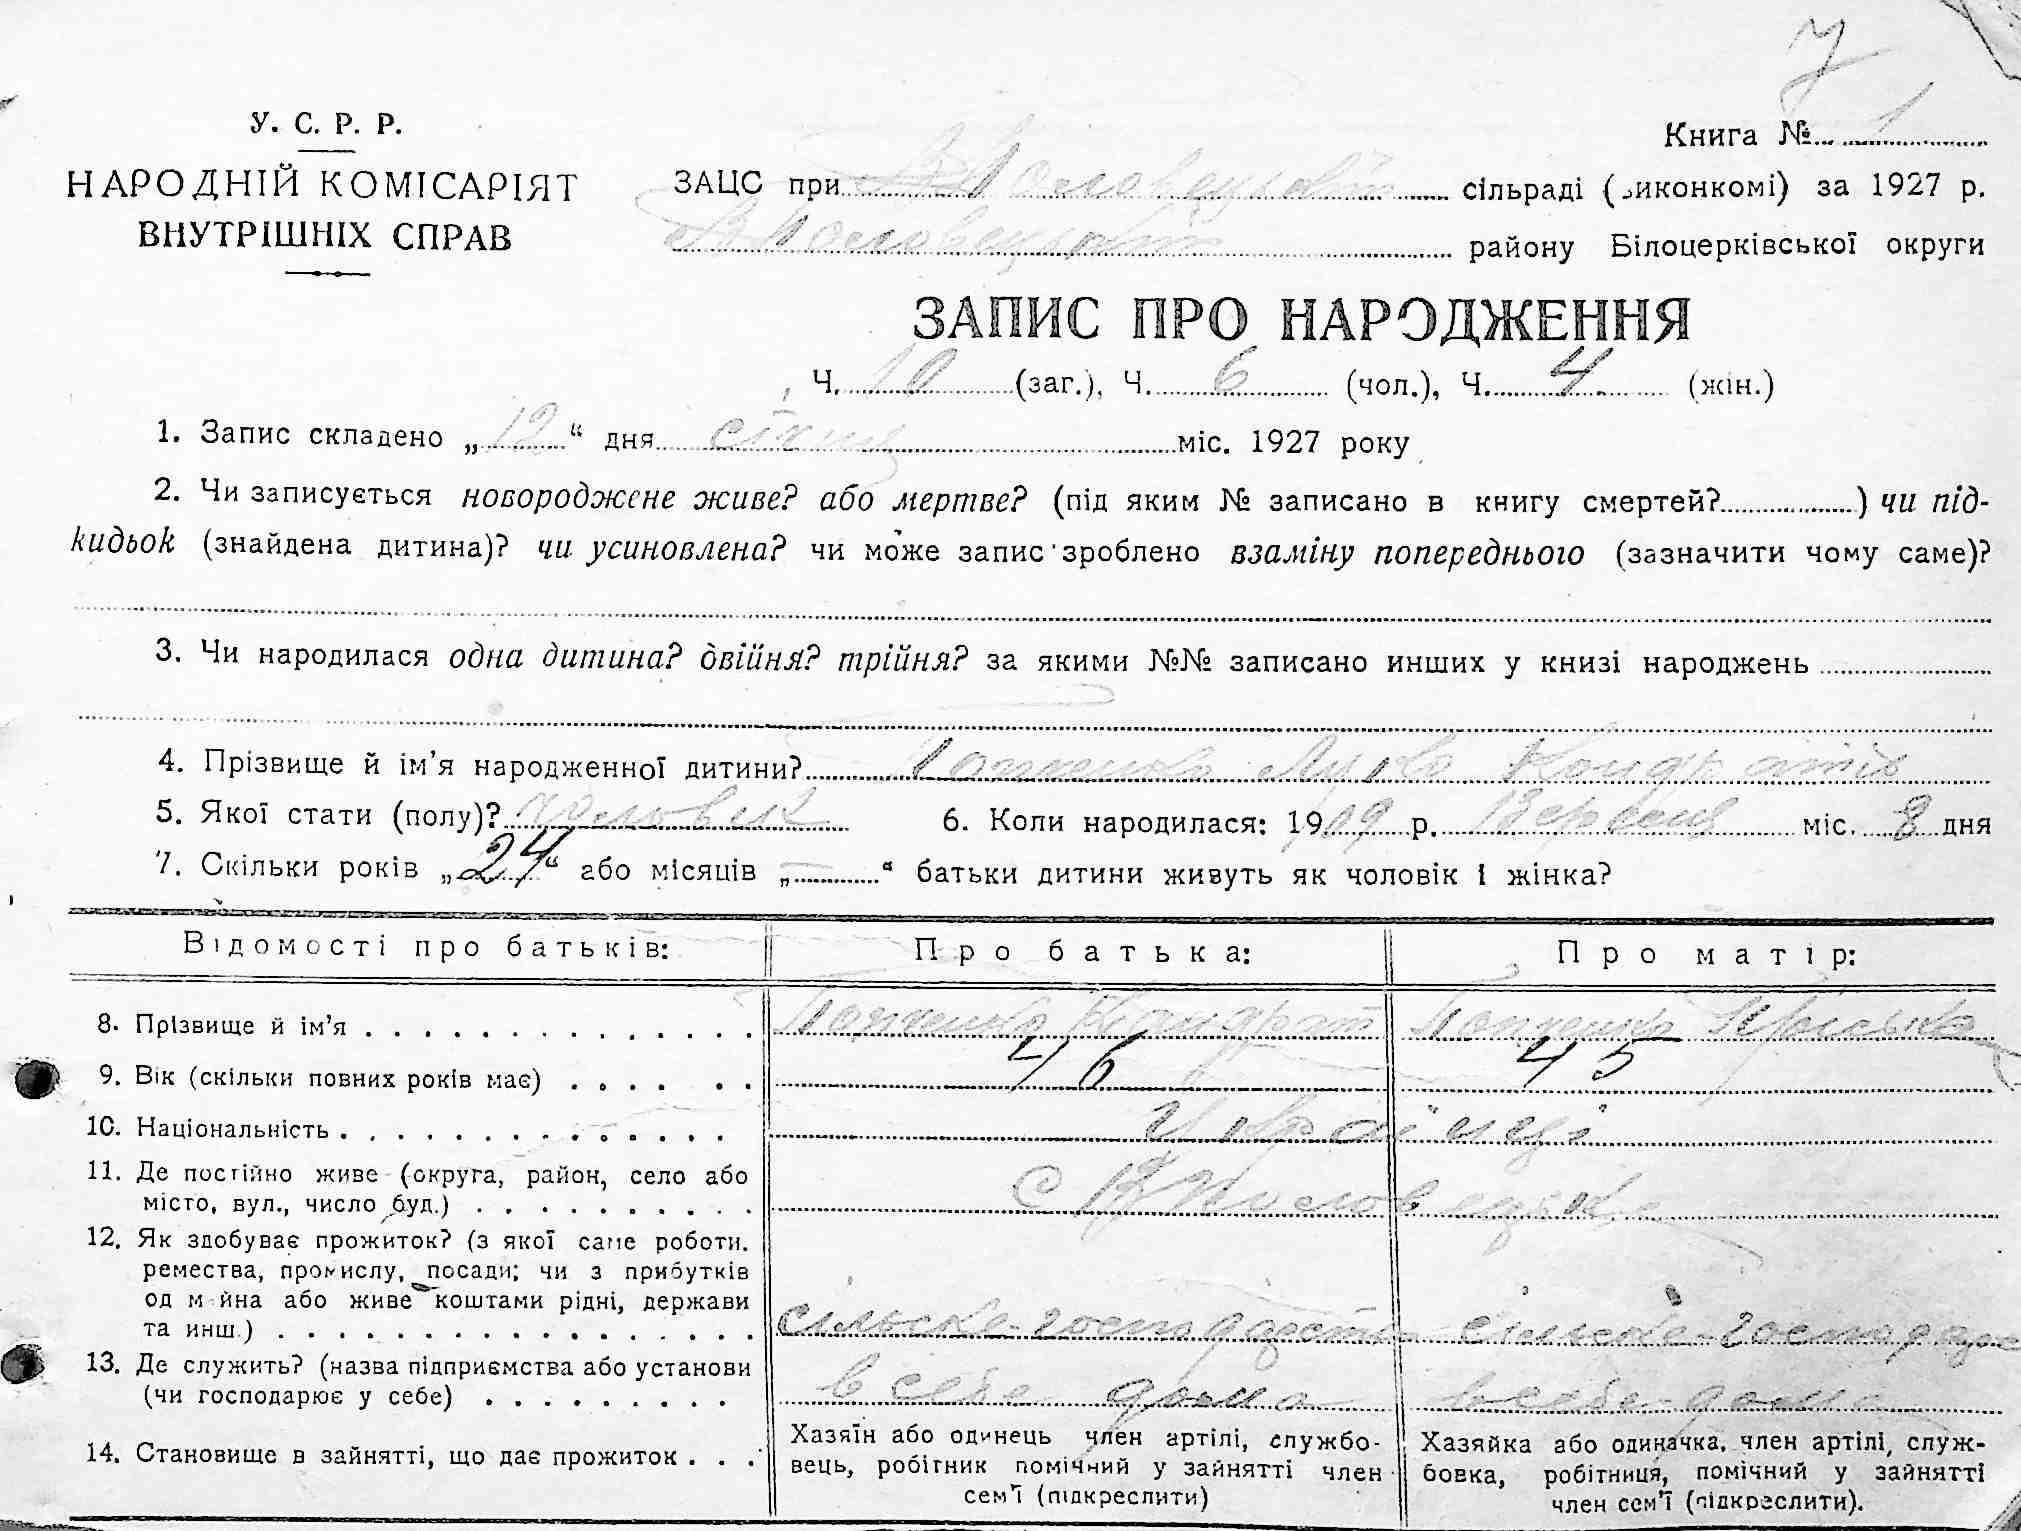 7
У. С. Р. Р.
НАРОДНІЙ КОМІСАРІЯТ
ВНУТРІШНІХ СПРАВ
Книга № 1
ЗАЦС при сільраді (виконкомі) за 1927 р.
району Білоцерківської округи
ЗАПИС ПРО НАРОДЖЕННЯ
Ч. 10 (заг.), Ч. 6 (чол.), Ч. 4. (жін.)
1. Запис складено „12“ дня січня міс. 1927 року
2. Чи записується новороджене живе? або мертве? (під яким № записано в книгу смертей?) чи під-
кидьок (знайдена дитина)? чи усиновлена? чи може запис зроблено взаміну попереднього (зазначити чому саме)?
3. Чи народилася одна дитина? двійня? трійня? за якими №№ записано инших у книзі народжень
4. Прізвище й ім’я народженної дитини?
5. Якої стати (полу)? чоловік 6. Коли народилася: 1909 р. Вересня міс. 8 дня
7. Скільки років „24“ або місяців „—“ батьки дитини живуть як чоловік і жінка?
Відомості про батьків: Про батька: Про матір:
8. Прізвище й ім’я Кондрат
9. Вік (скільки повних років має) 46 45
10. Національність Українці
11. Де постійно живе (округа, район, село або
місто, вул., число буд.) с
12. Як здобуває прожиток? (з якої саме роботи,
ремества, промислу, посади; чи з прибутків
од майна або живе коштами рідні, держави
та инш.) сільске-господарство сільске-господарс
13. Де служить? (назва підприємства або установи
(чи господарює у себе) в себе дома в себе дома
14. Становище в зайнятті, що дає прожиток
Хазяїн або одинець член артілі, службо-
вець, робітник помічний у зайнятті член
сем’ї (підкреслити)
Хазяйка або одиначка, член артілі, служ-
бовка, робітниця, помічний у зайнятті
член сем’ї (підкреслити).